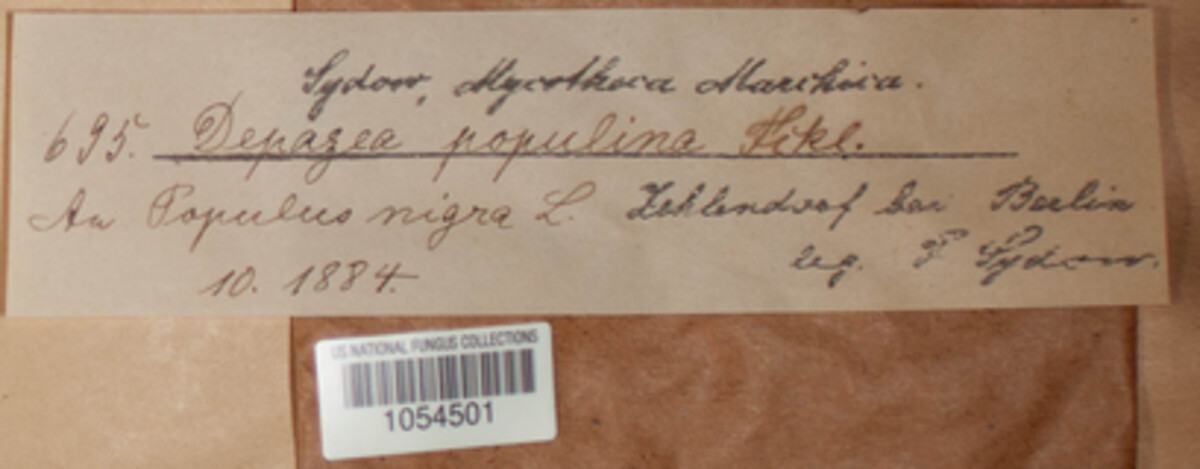 Sydow, Mycotheca Marchica.
695. Depazea populina Fckl.
An Populus nigra L. Zehlendorf bei Berlin
10. 1884. leg. P Sydow.
US NATIONAL FUNGUS COLLECTIONS
1054501